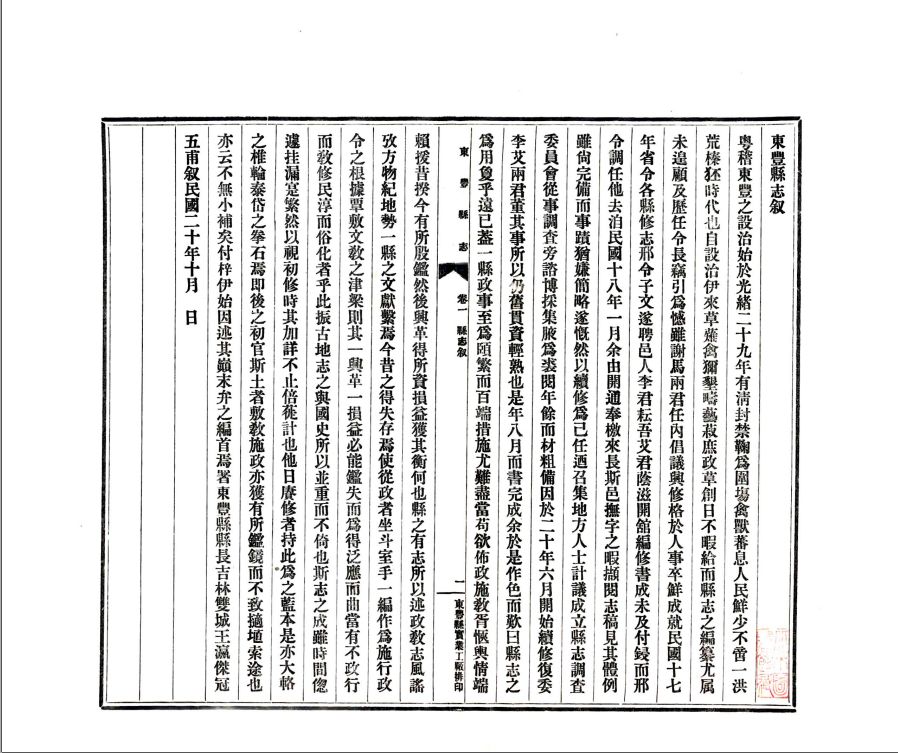 東豐縣志叙
粤稽東豐之設治始於光緒二十九年有淸封禁鞠爲圍塲禽獸蕃息人民鮮少不啻一洪
荒榛狉時代也自設治伊來草薙禽獮墾疇藝菽庶政草創日不暇給而縣志之編纂尤属
未遑顧及歷任令長竊引爲憾雖謝馬兩君任內倡議興修格於人事卒鮮成就民國十七
年省令各縣修志邢令子文遂聘邑人李君耘吾艾君蔭滋開舘編修書成未及付錽而邢
令調任他去洎民國十八年一月余由開通奉檄來長斯邑撫字之暇擷閱志稿見其體例
雖尙完備而事蹟猶嫌簡略遂慨然以續修爲己任迺召集地方人士計議成立縣志調査
委員會從事調査旁諮博採集腋爲裘閱年餘而材粗備因於二十年六月開始續修復委
李艾兩君董其事所以仍舊貫資輕熟也是年八月而書完成余於是作色而歎曰縣志之
爲用夐乎遠已葢一縣政事至爲頤繁而百端措施尤難盡當苟欲佈政施敎胥恢輿情端
東豐縣志 卷一 縣志叙 一 東豐縣實業工廠排印
賴援昔揆今有所殷鑑然後興革得所資損益獲其衡何也縣之有志所以述政敎志風謠
攷方物紀地勢一縣之文獻繫焉今昔之得失存焉使從政者坐斗室手一編作爲施行政
令之根據覃敷文敎之津梁則其一興革一損益必能鑑失而爲得泛應而曲當有不政行
而敎修民淳而俗化者乎此振古地志之與國史所以並重而不倚也斯志之成雖時間偬
遽挂漏寔繁然以視初修時其加詳不止倍蓰計也他日賡修者持此爲之藍本是亦大輅
之椎輪泰岱之拳石焉即後之初官斯土者敷敎施政亦獲有所鑑鏡而不致擿埴索途也
亦云不無小補矣付梓伊始因述其巔末弁之編首焉署東豐縣縣長吉林雙城王瀛傑冠
五甫叙民國二十年十月　日